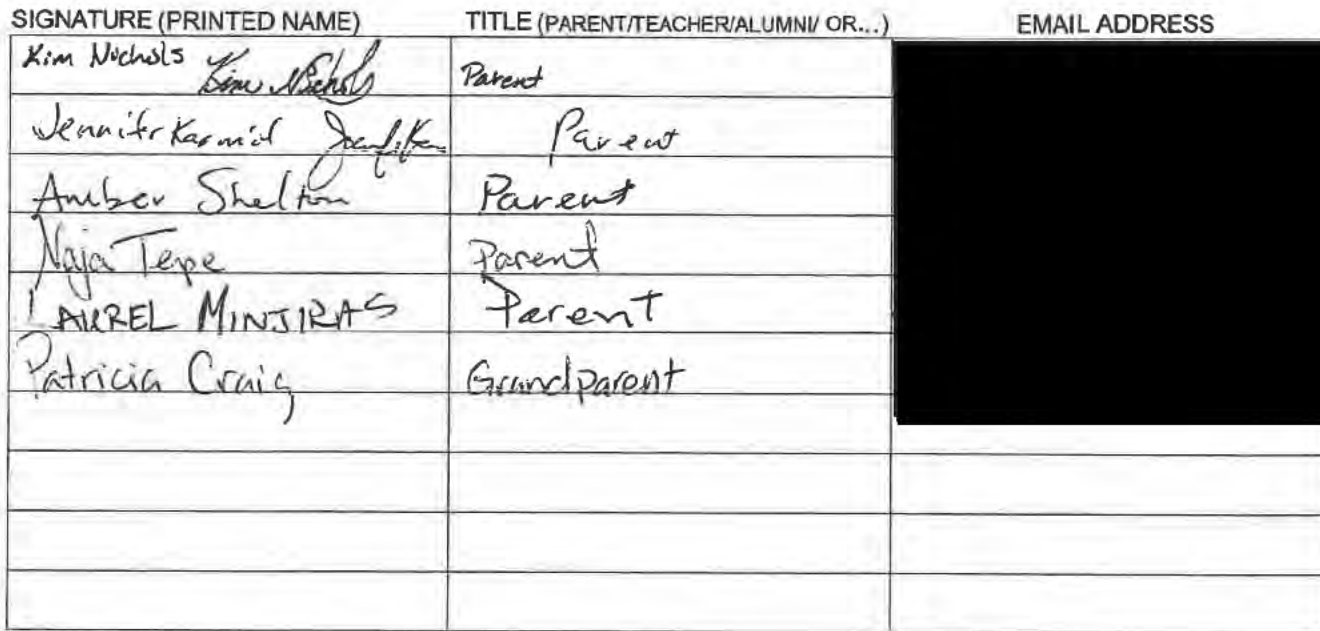 SIGNATURE (PRINTED NAME) TITLE (PARENT/TEACHER/ALUMNI/ OR...) EMAIL ADDRESS
Kim Nichols Kim Nichols Parent
Jennifr Parent
Amber Shelton Parent
Naja Tepe Parent
LAUREL MINJIRAS Parent
Patricia Craig Grandparent